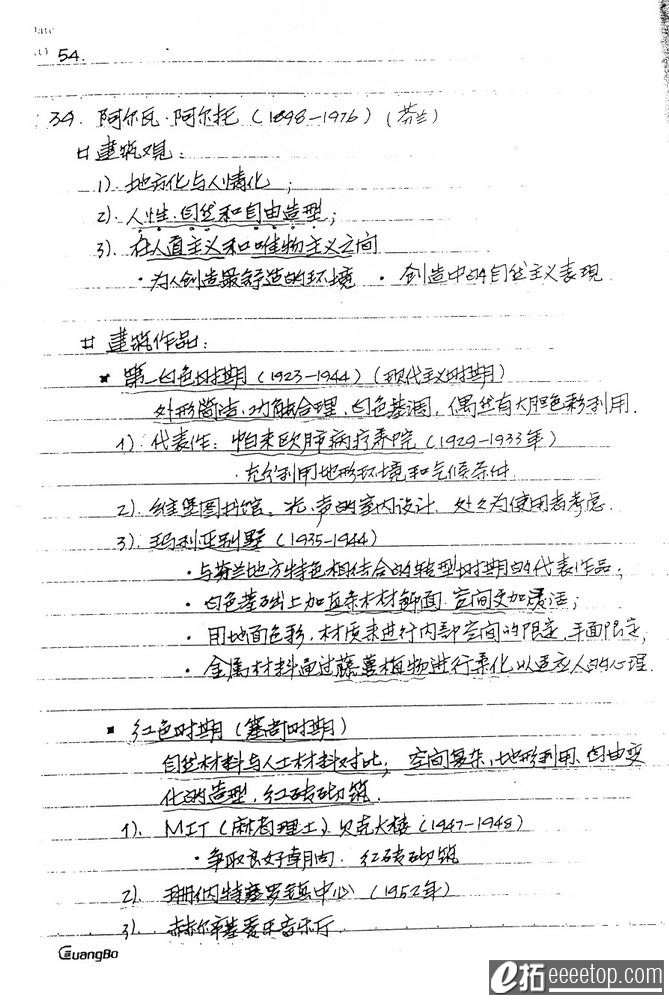 Date
54.
34. 阿尔瓦·阿尔托 (1898-1976) (芬兰)
# 建筑观:
1). 地方化与人情化;
2). 人性.自然和自由造型;
3). 在人道主义和唯物主义之间
·为人创造最舒适的环境 · 创造中的自然主义表现.
# 建筑作品:
▪ 第一白色时期 (1923-1944) (现代主义时期)
外形简洁,功能合理,白色基调,偶然有大胆色彩利用.
1). 代表作: 帕米欧肺病疗养院 (1929-1933年)
·充分利用地形环境和气候条件.
2). 维堡图书馆、光.声的室内设计,处处为使用者考虑.
3). 玛利亚别墅 (1935-1944)
·与芬兰地方特色相结合的转型时期的代表作品;
·白色基础上加直条木材饰面.空间更加灵活;
·用地面色彩,材质来进行内部空间的限定,平面限定,
·金属材料通过藤蔓植物进行柔化以适应人的心理.
▪ 红色时期 (塞奇时期)
自然材料与人工材料对比; 空间复杂,地形利用、自由变
化的造型,红砖砌筑.
1). MIT (麻省理工) 贝克大楼 (1947-1948)
·争取良好朝向. 红砖砌筑
2). 珊纳特赛罗镇中心 (1952年)
3). 赫尔辛基爱乐音乐厅
GuangBo
e拓 eeeetop.com